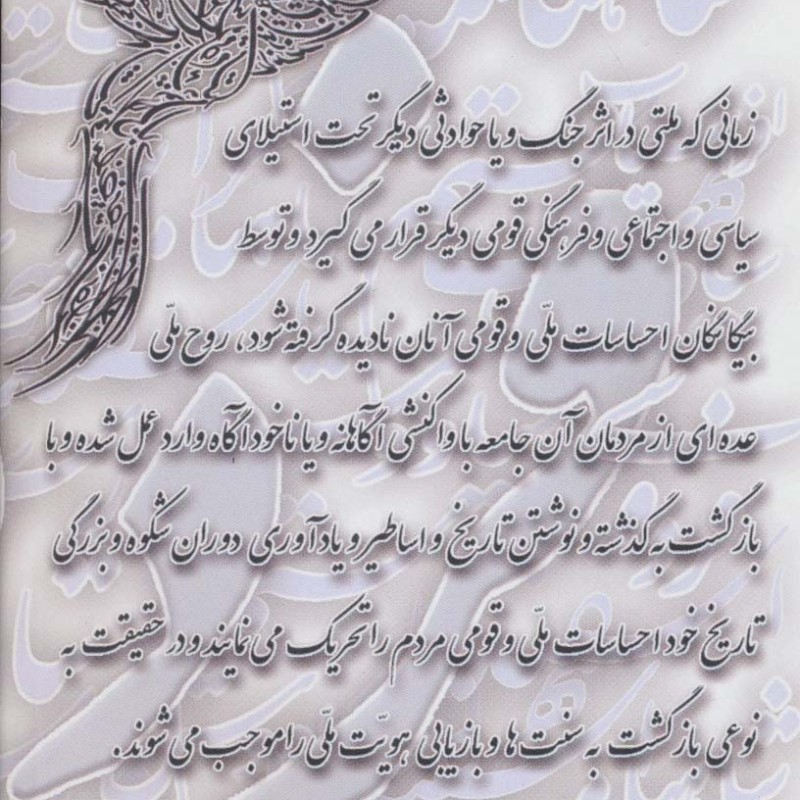 زمانی که ملتی در اثر جنگ و یا حوادثی دیگر تحت استیلای
سیاسی و اجتماعی و فرهنگی قومی دیگر قرار می گیرد و توسط
بیگانگان احساسات ملّی و قومی آنان نادیده گرفته شود، روح ملّی
عده ای از مردمان آن جامعه با واکنشی آگاهانه و یا ناخودآگاه وارد عمل شده و با
بازگشت به گذشته و نوشتن تاریخ و اساطیر و یادآوری دوران شکوه و بزرگی
تاریخ خود احساسات ملّی و قومی مردم را تحریک می نمایند و در حقیقت به
نوعی بازگشت به سنت ها و بازیابی هویّت ملّی را موجب می شوند.